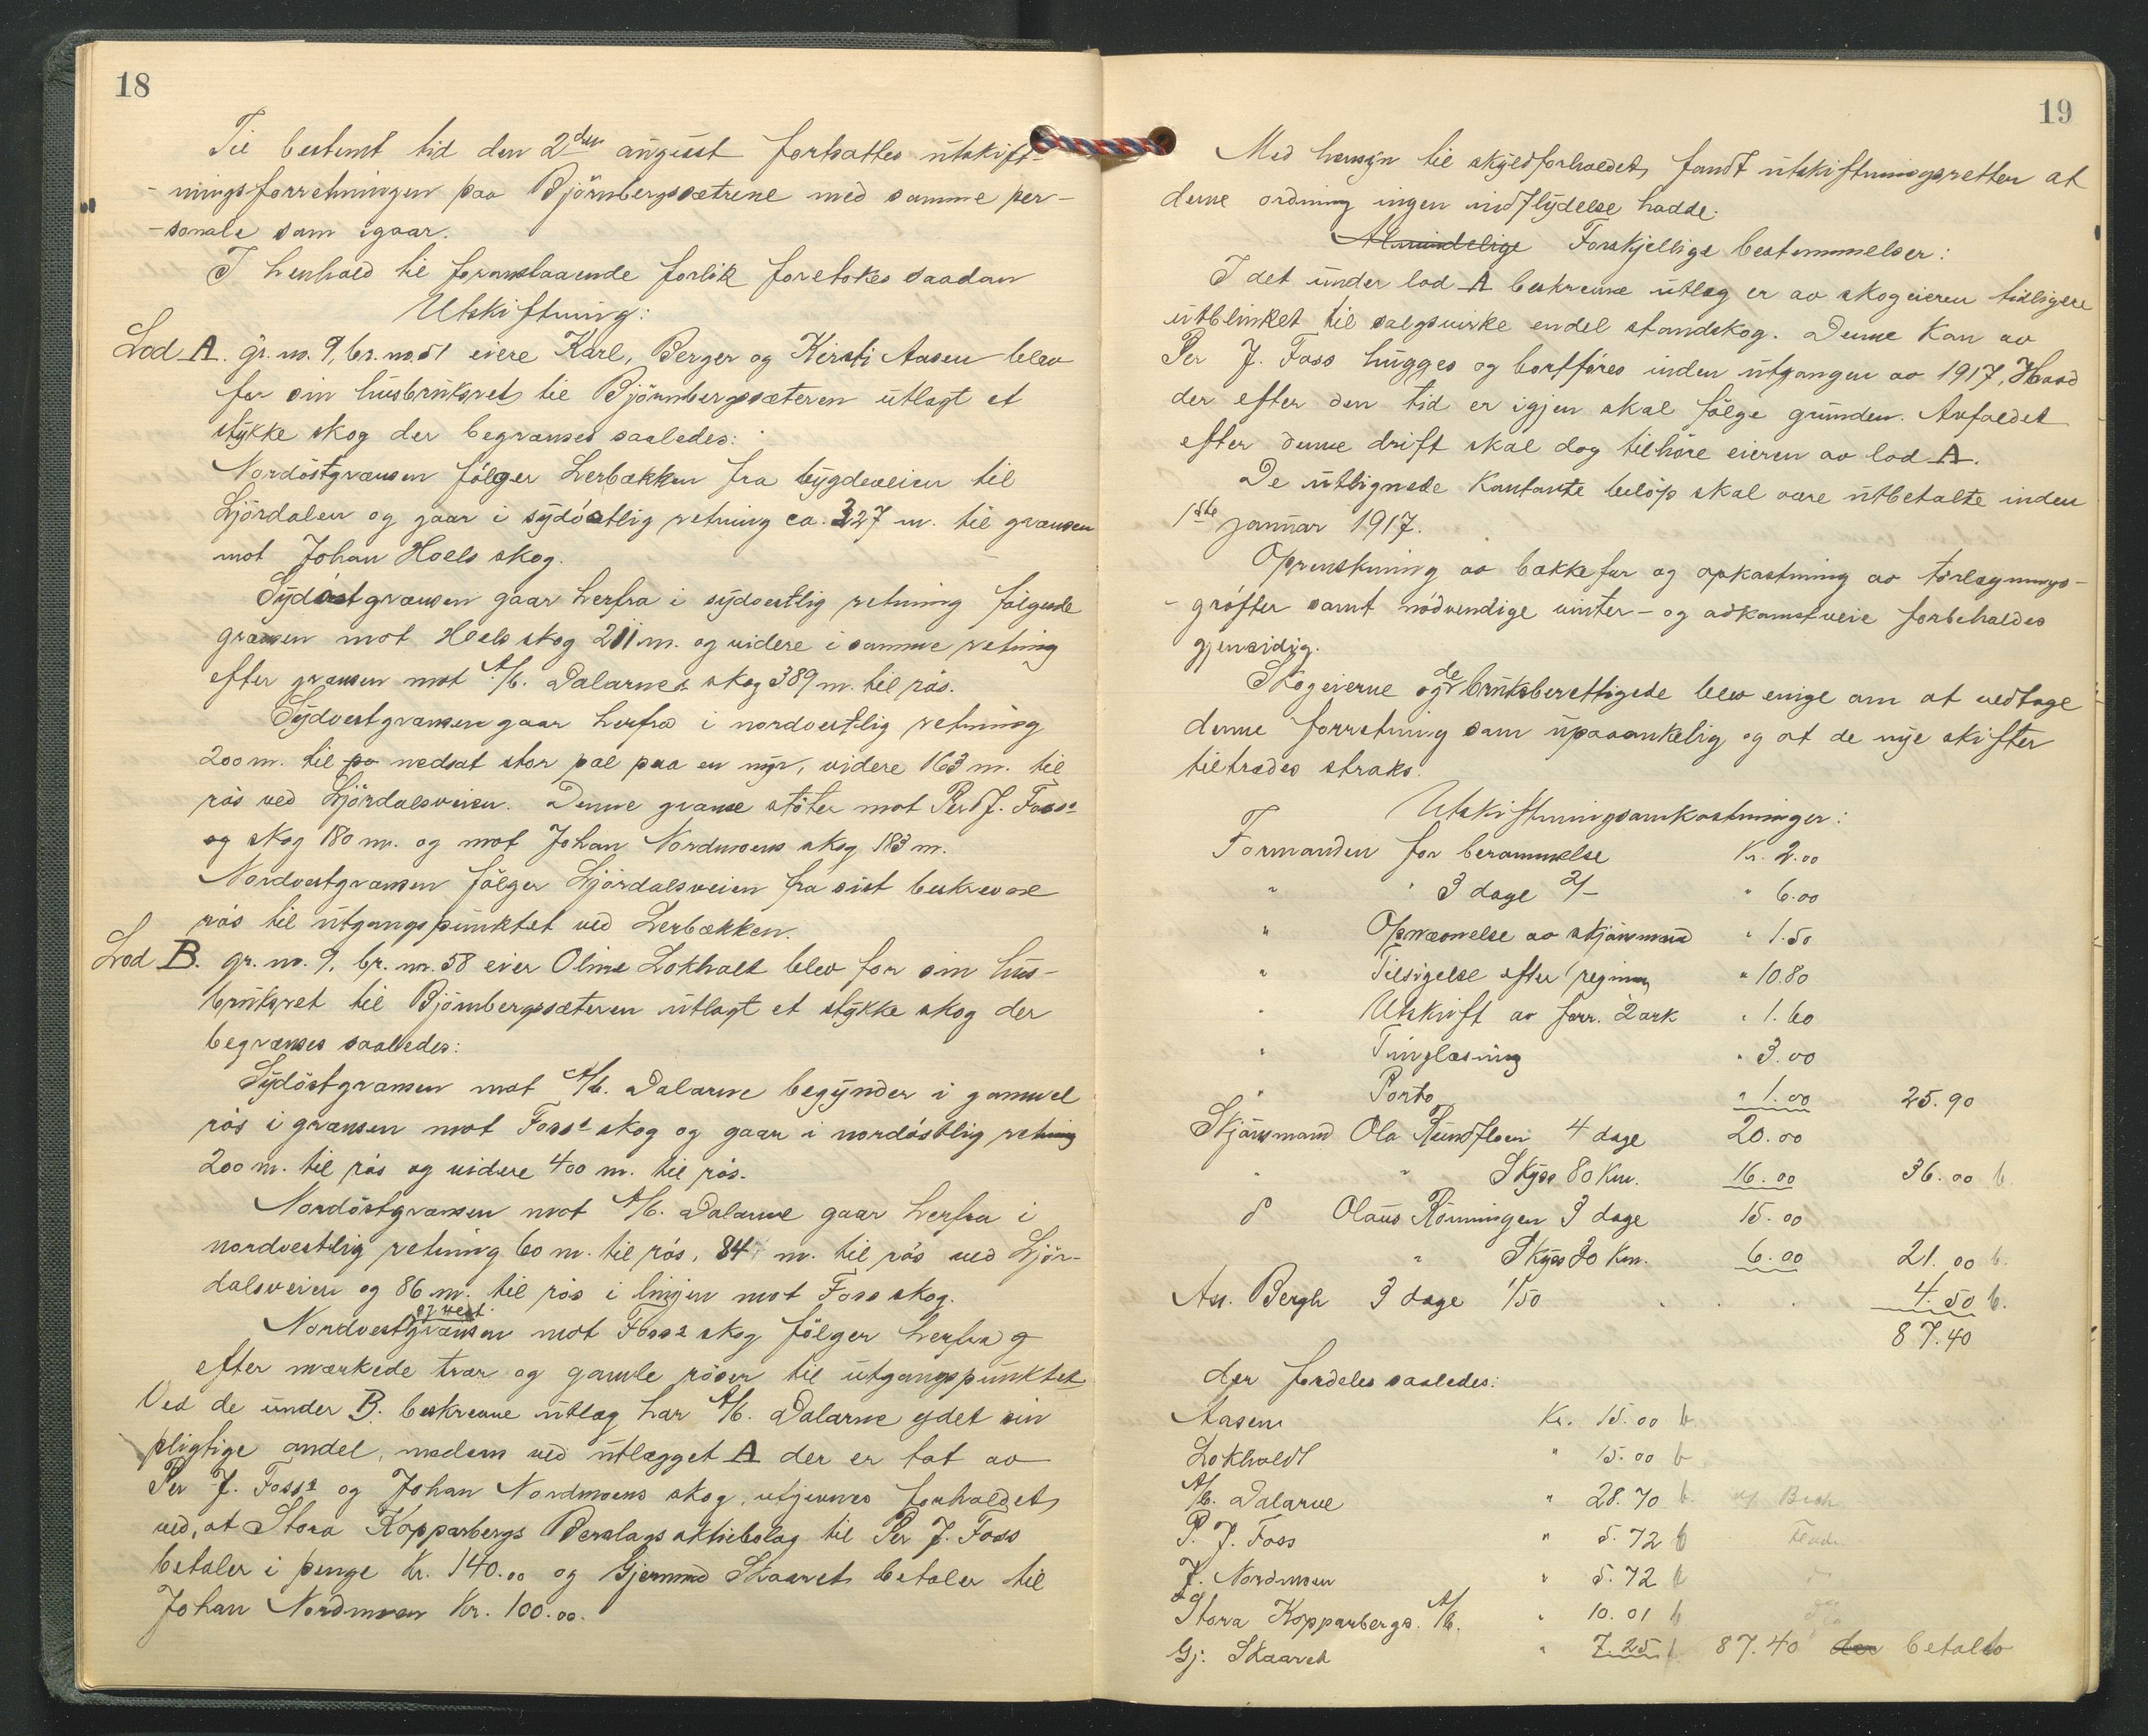 18
Til bestemt tid den 2den august fortsattes utskift-
-ningsforretningen paa Bjørnbergsætrene med samme per-
-sonale som igaar.
I henhold til foranstaaende forlik foretokes saadan
Utskiftning:
Lod A. gr. no. 9, br. no. 51 eiere Karl, Berger og Kirsti Aasen blev
for sin husbruksret til Bjørnbergsæteren utlagt et
stykke skog der begrænses saaledes:
Nordøstgrænsen følger Lerbækken fra bygdeveien til
Ljördalen og gaar i sydøstlig retning ca. 327 m. til grænsen
mot Johan Hoels skog.
Sydøstgrænsen gaar herfra i sydvestlig retning følgende
grænsen mot Hoels skog 211 m. og videre i samme retning
efter grænsen mot A/B. Dalarnes skog 389 m. til rös.
Sydvestgrænsen gaar herfra i nordvestlig retning
200 m. til po nedsat stor pæl paa en myr, videre 163 m. til
rös ved Ljördalsveien. Denne grænse støter mot Per J. Foss's
og skog 180 m. og mot Johan Nordmoens skog 183 m.
Nordvestgrænsen følger Ljördalsveien fra sist beskrevne
rös til utgangspunktet ved Lerbækken.
Lod B. gr. no. 9, br. no. 58 eier Oline Lokholt blev for sin hus-
bruksret til Bjørnbergsæteren utlagt et stykke skog der
begrænses saaledes:
Sydøstgrænsen mot A/B. Dalarne begynder i gammel
rös i grænsen mot Foss's skog og gaar i nordøstlig retning
200 m. til rös og videre 400 m. til rös.
Nordøstgrænsen mot A/B. Dalarne gaar herfra i
nordvestlig retning 60 m. til rös, 84 m. til rös ved Ljör-
dalsveien og 86 m. til rös i linjen mot Foss skog.
og vest
Nordvestgrænsen mot Foss's skog følger herfra
efter mærkede trær og gamle röser til utgangspunktet
Ved de under B. beskrevne utlæg har A/B. Dalarne ydet sin
pligtige andel, medens ved utlægget A der er tat av
Per J. Foss's og Johan Nordmoens skog, utjevnes forholdet
ved, at Stora Kopparbergs Berslags aktiebolag til Per J. Foss
betaler i penge Kr. 140.00 og Gjermund Skaaret betaler til
Johan Nordmoen Kr. 100.00.
19
Med hensyn til skyldforholdet, fandt utskiftningsretten at
denne ordning ingen indflydelse hadde.
Almindelige Forskjellige bestemmelser:
I det under lod A beskrevne utlæg er av skogeieren tidligere
utblinket til salgsvirke endel standskog. Denne kan av
Per J. Foss hugges og bortføres inden utgangen av 1917, Hvad
der efter den tid er igjen skal følge grunden. Avfaldet
efter denne drift skal dog tilhøre eieren av lod A.
De utlignede kontante beløp skal være utbetalte inden
1ste januar 1917.
Oprenskning av bækkefar og opkastning av tørlægnings-
-grøfter samt nødvendige vinter- og adkomstveie forbeholdes
gjensidig.
de
Skogeierne og bruksberettigede blev enige om at vedtage
denne forretning som upaaankelig og at de nye skifter
tiltrædes straks.
Utskiftningsomkostninger:
Formanden for berammelse Kr. 2.00
" " 3 dage 2/- " 6.00
" Opnævnelse av skjønsmænd " 1.50
" Tilsigelse efter regning " 10.80
" Utskrift av forr. 2 ark " 1.60
" Tinglæsning " 3.00
" Porto " 1.00 25.90
Skjønsmand Ola Rundfloen 4 dage 20.00
" " Skyss 80 Km. 16.00 36.00 b.
d Olaus Rönningen 3 dage 15.00
" Skyss 30 Km. 6.00 21.00 b.
Ass. Bergh 3 dage 1/50 . . . 4.50 b.
87.40
der fordeles saaledes:
Aasen Kr. 15.00 b.
Lokholdt " 15.00 b.
A/B. Dalarne " 28.70 b.
P. J. Foss " 5.72 b
J. Nordmoen " 5.72 b
Stora Kopparbergs. A/B. " 10.01 b
Gj. Skaaret " 7.25 b. 87.40 der betalt